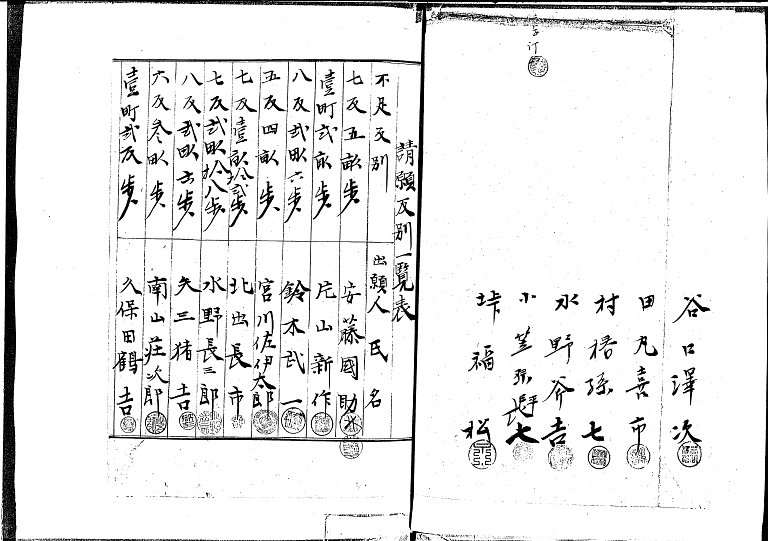 谷口澤次
田丸喜市
村椿孫七
水野斧吉
小笠孫七
垰福松
請願反別一覧表
不足反別 出願人氏名
七反五畝歩 安藤國助
壹町弐畝歩 片山新作
八反弐畝六歩 鈴木武一
五反四畝歩 宮川佐伊太郎
七反壹畝拾弐歩 北出長市
七反弐畝拾八歩 水野長三郎
八反弐畝 歩 矢三猪吉
六反参畝歩 南山荘次郎
壹町弐反歩 久保田鶴吉